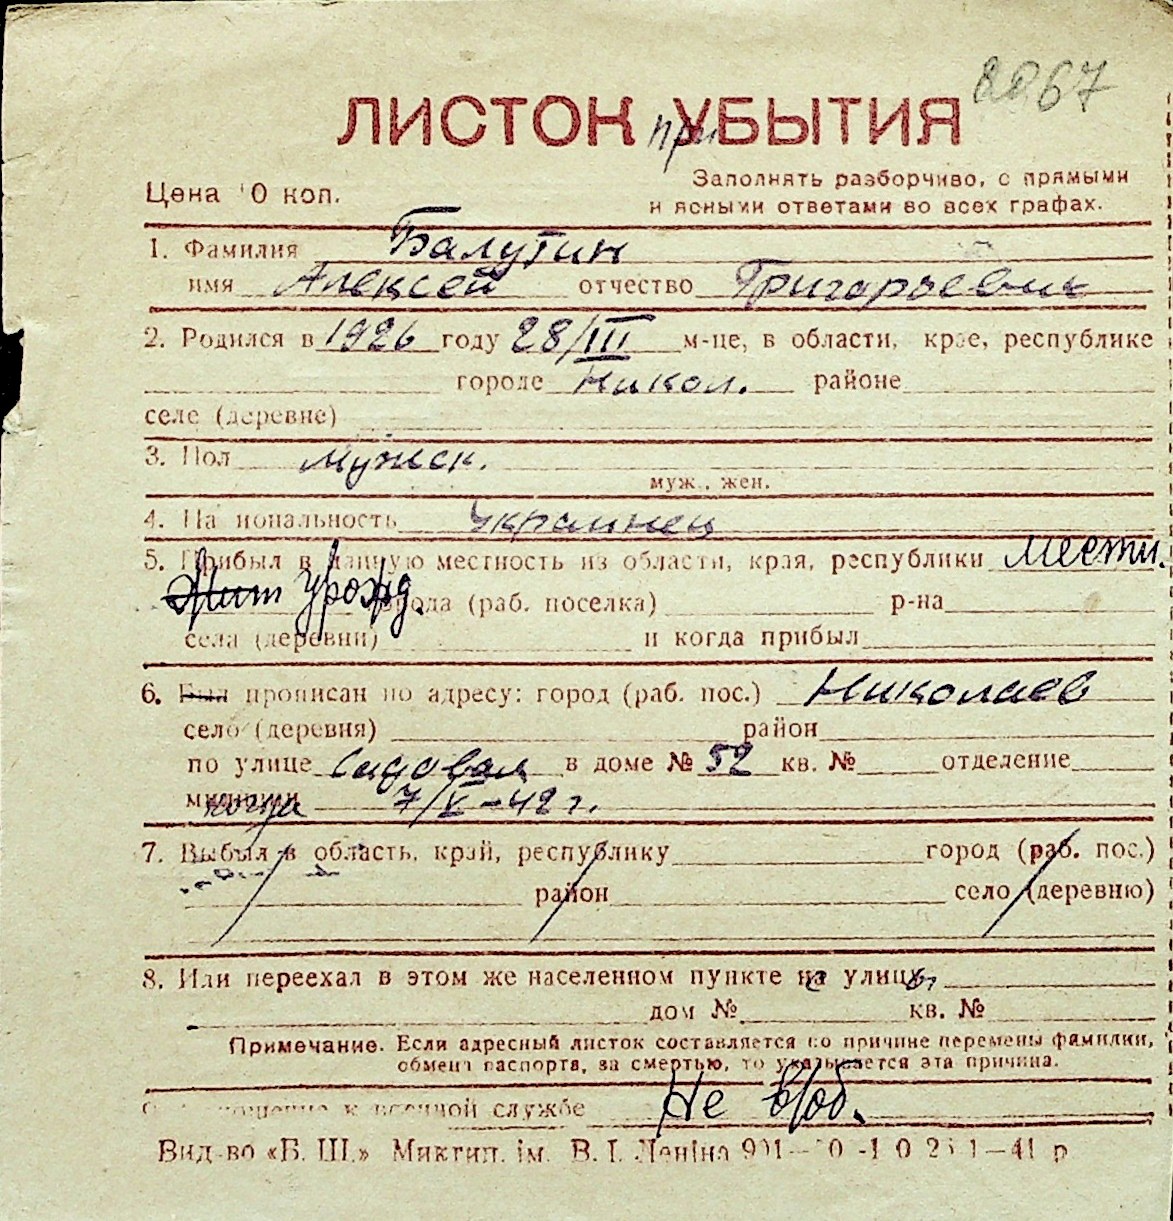 8967
ЛИСТОК при УБЫТИЯ
Цена 10 коп.
Заполнять разборчиво, с прямыми
и ясными ответами во всех графах.
1. Фамилия Балутин
имя Алексей отчество Григорьевич
2. Родился в 1926 году 28/III м-це, в области, крае, республике
городе Никол. районе
селе (деревне)
3. Пол мужск.
муж., жен.
4. Национальность украинец
5. Прибыл в данную местность из области, края, республики местн.
Жит урожд. города (раб. поселка) р-на
села (деревни) и когда прибыл
6. Был прописан по адресу: город (раб. пос.) Николаев
село (деревня) район
по улице Садовая в доме № 52 кв. № отделение
милиции когда 7/V-42 г.
7. Выбыл в область, край, республику город (раб. пос.)
район село (деревню)
8. Или переехал в этом же населенном пункте с улицы
дом № кв. №
Примечание. Если адресный листок составляется по причине перемены фамилии,
обмена паспорта, за смертью, то указывается эта причина.
Отношение к военной службе Не в/об.
Вид-во «Б. Ш.» Миктип. ім. В. І. Леніна 901—41 р